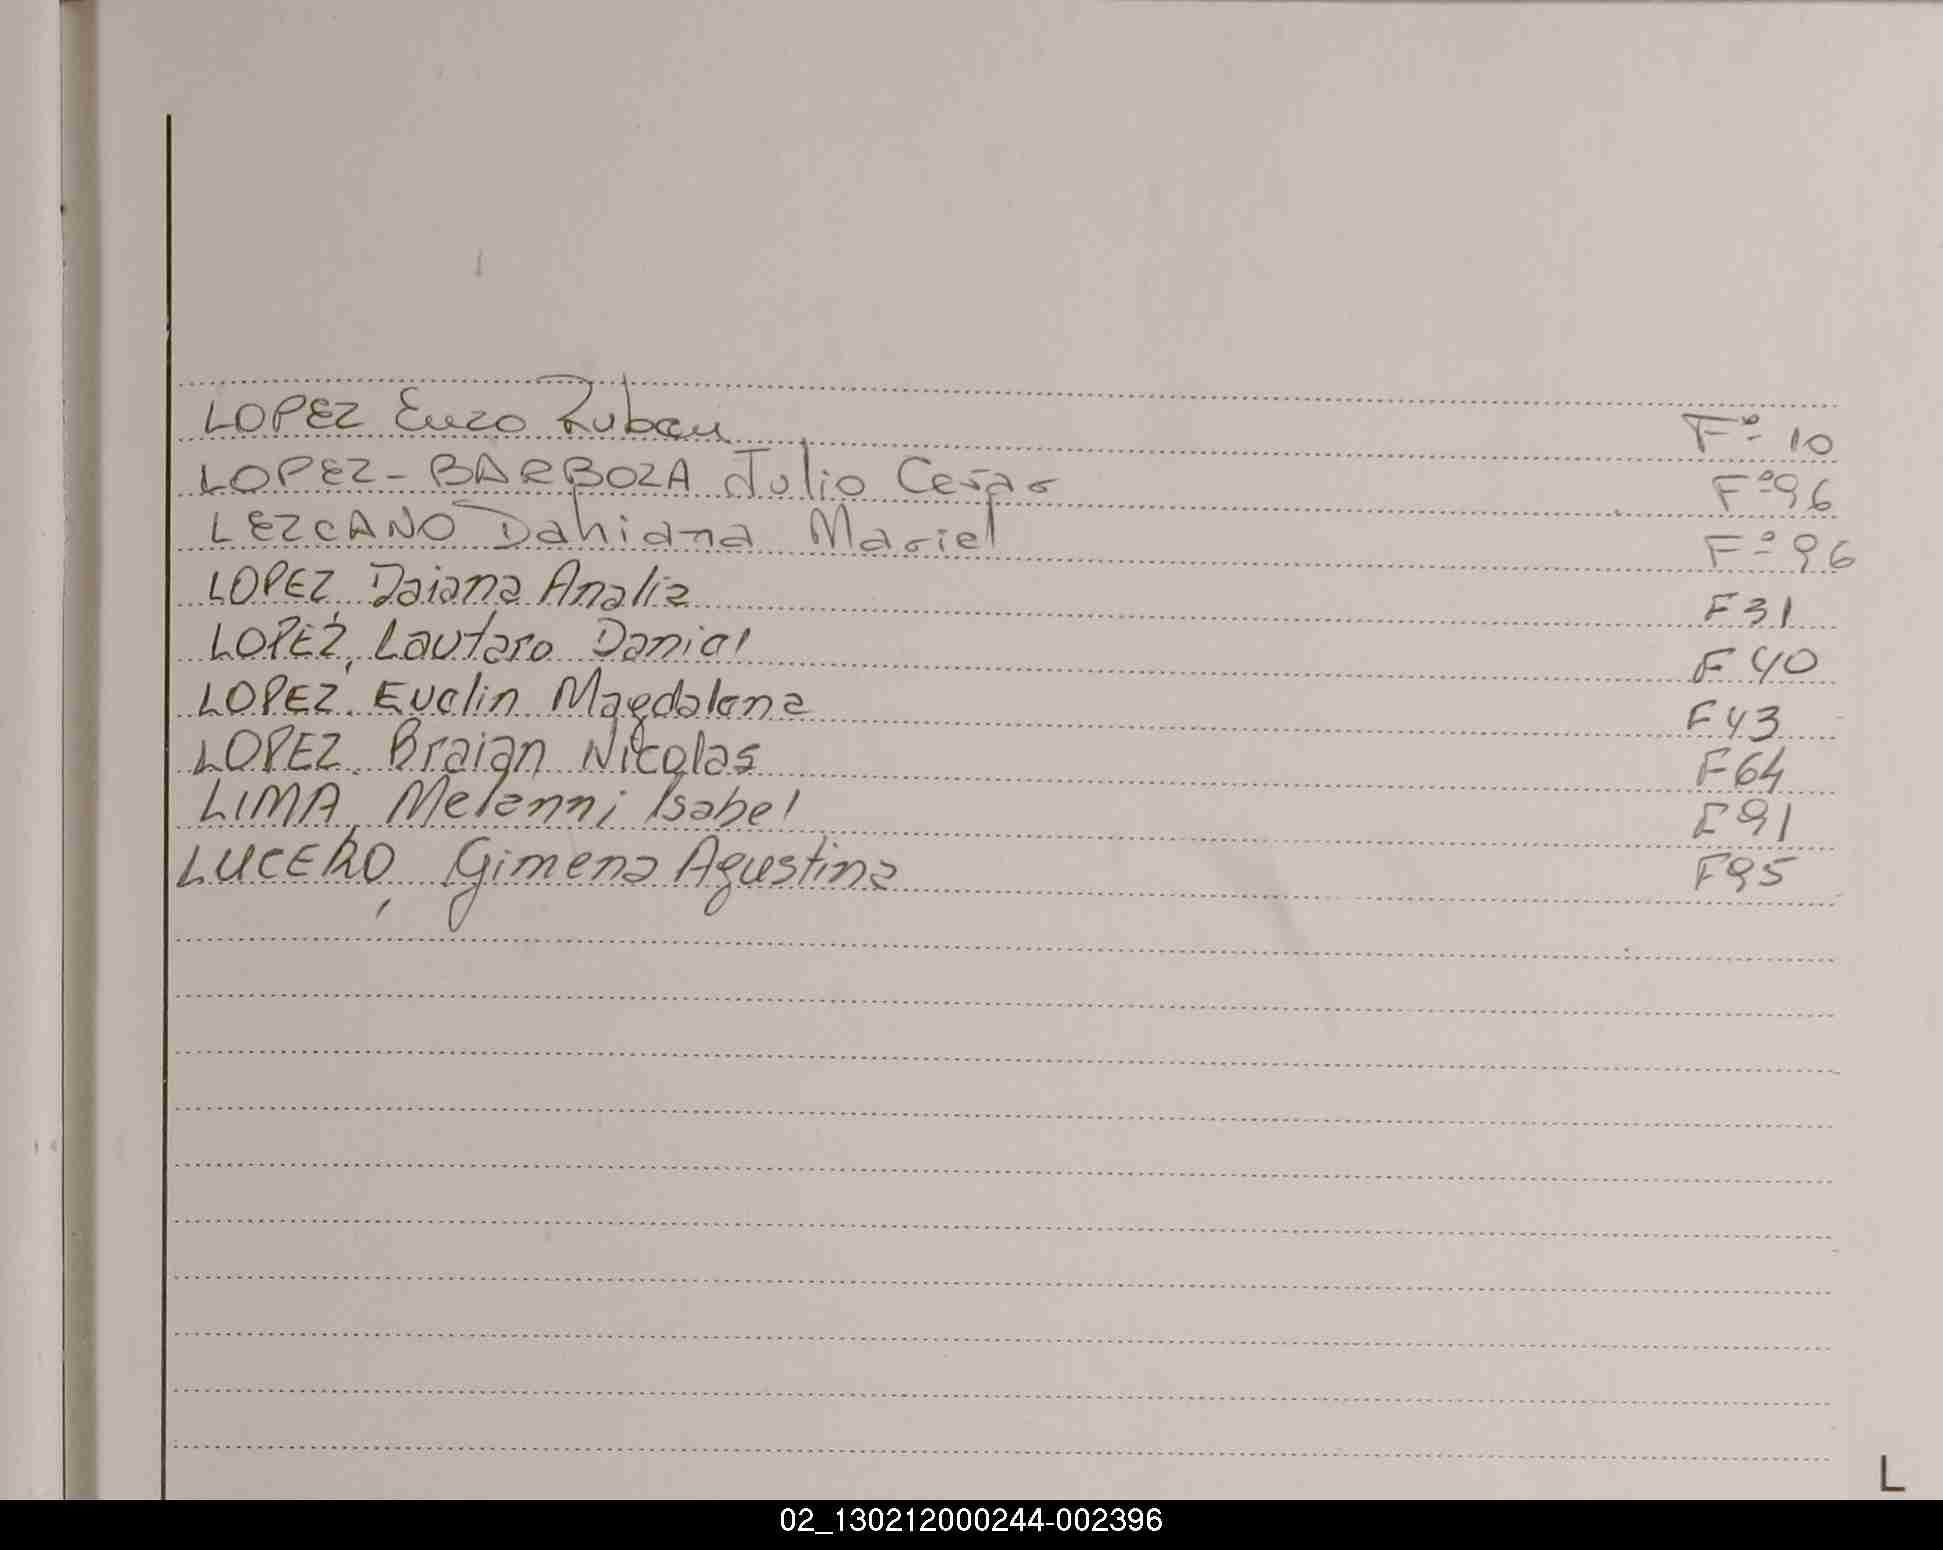 LOPEZ Enzo Ruben F° 10
LOPEZ - BARBOZA Julio Cesar F° 96
LEZCANO Dahiana Mariel F° 96
LOPEZ, Daiana Analia F 31
LOPEZ, Lautaro Daniel F 40
LOPEZ, Evelin Magdalena F 43
LOPEZ, Braian Nicolas F 64
LIMA, Melanni Isabel F 91
LUCERO, Gimena Agustina F 95
L
02_130212000244-002396